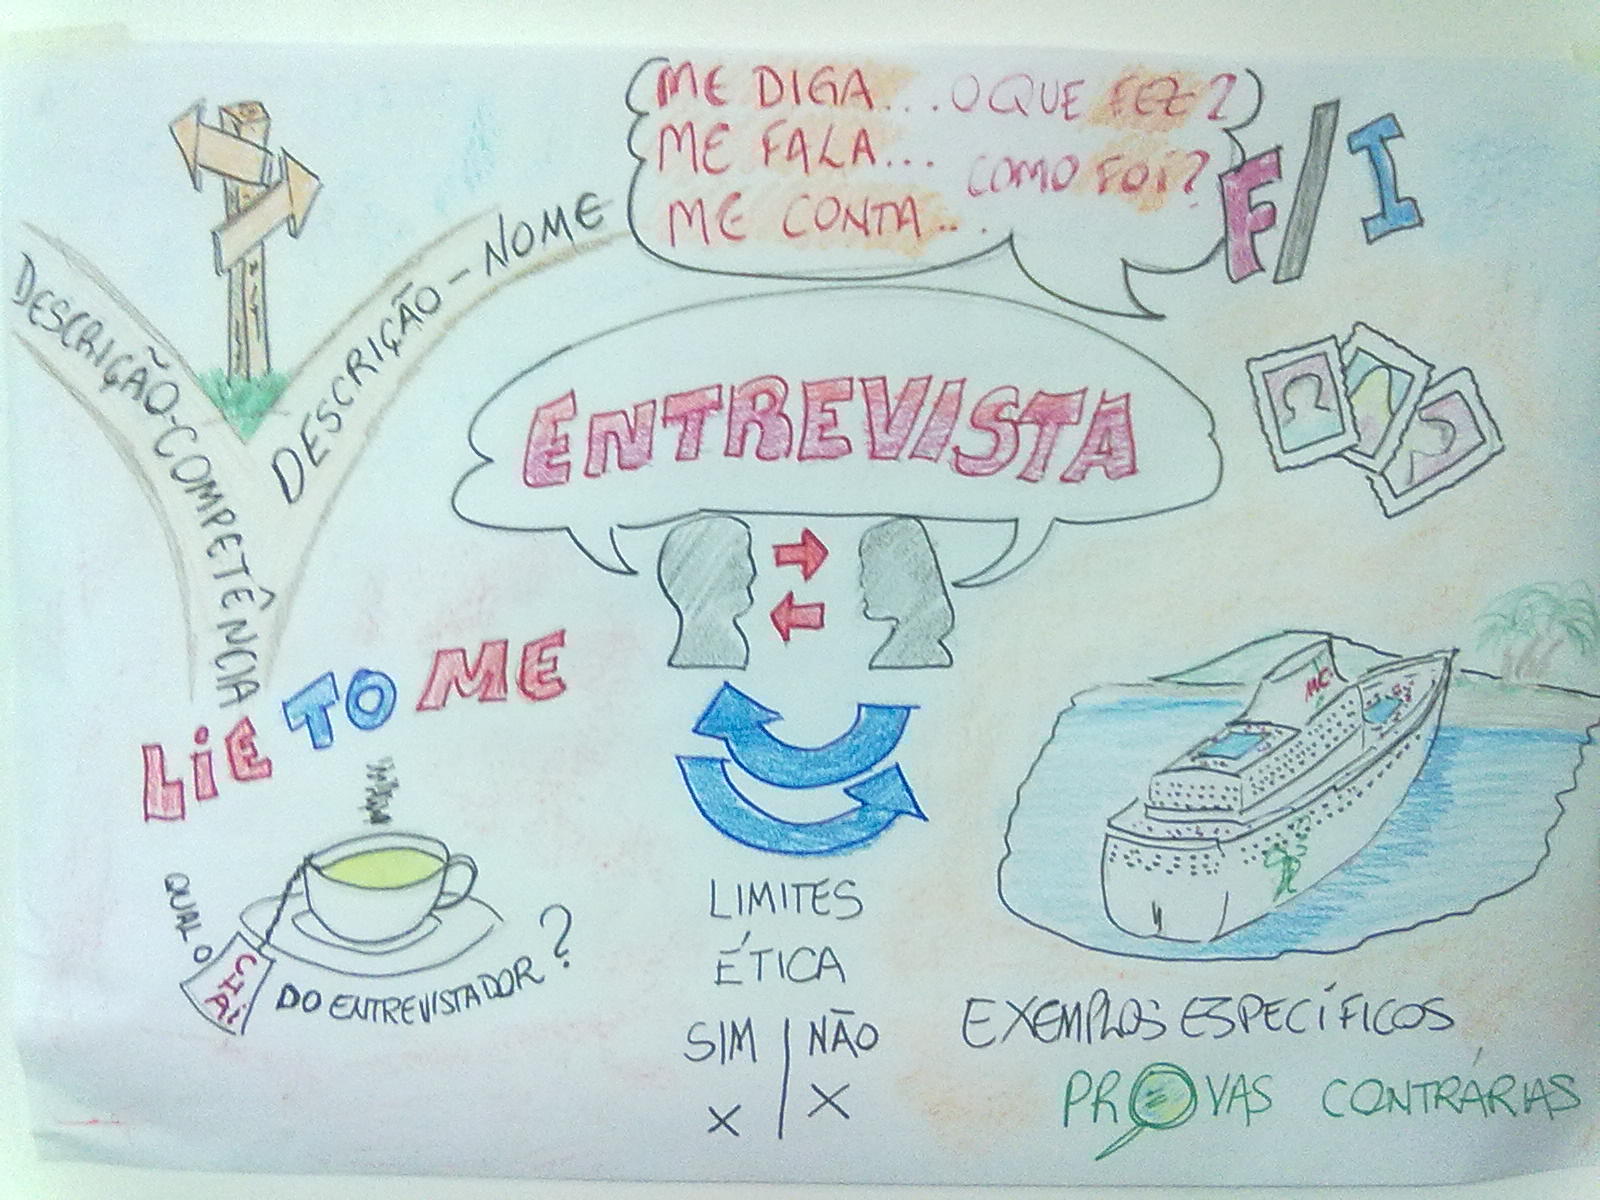 ME DIGA... O QUE FEZ?
ME FALA... COMO FOI?
ME CONTA...
F/I
DESCRIÇÃO-COMPETÊNCIA
DESCRIÇÃO-NOME
ENTREVISTA
LiE TO ME
QUAL O
CHAi
DO ENTREVISTADOR?
LIMITES
ÉTICA
SIM | NÃO
X | X
EXEMPLOS ESPECÍFICOS
PROVAS CONTRÁRIAS